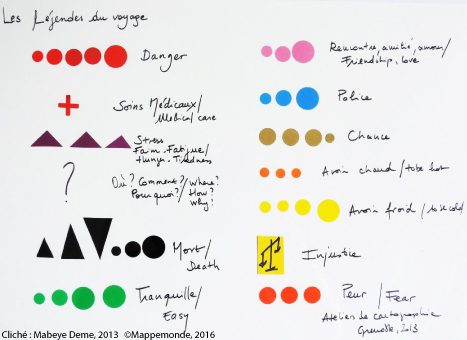 Les Légendes du voyage
Danger
Soins Médicaux/
Medical care
Stress
Faim. Fatigue/
Hunger. Tiredness
?
Où? Comment?/Where?
Pourquoi?/How?
Why?
Mort/
Death
Tranquille/
Easy
Rencontre, amitié, amour/
Friendship, love
Police
Chance
Avoir chaud/to be hot
Avoir froid/to be cold
Injustice
Peur/Fear
Atelier de cartographie
Grenoble, 2013
Cliché : Mabeye Deme, 2013 ©Mappemonde, 2016